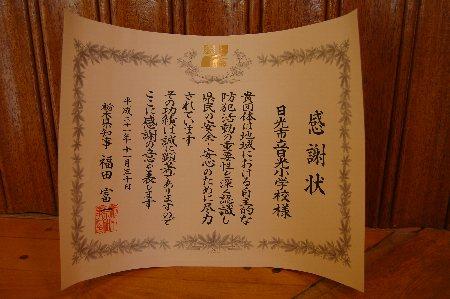 感謝状
日光市立日光小学校様
貴団体は地域における自主的な
防犯活動の重要性を深く認識し
県民の安全・安心のために尽力
されています
その功績は誠に顕著でありますので
ここに感謝の意を表します
平成二十一年十一月三十日
栃木県知事 福田富一